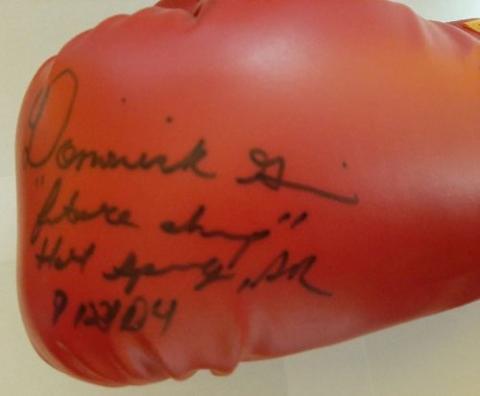 Dominick G
"future champ"
Hot Springs, AR